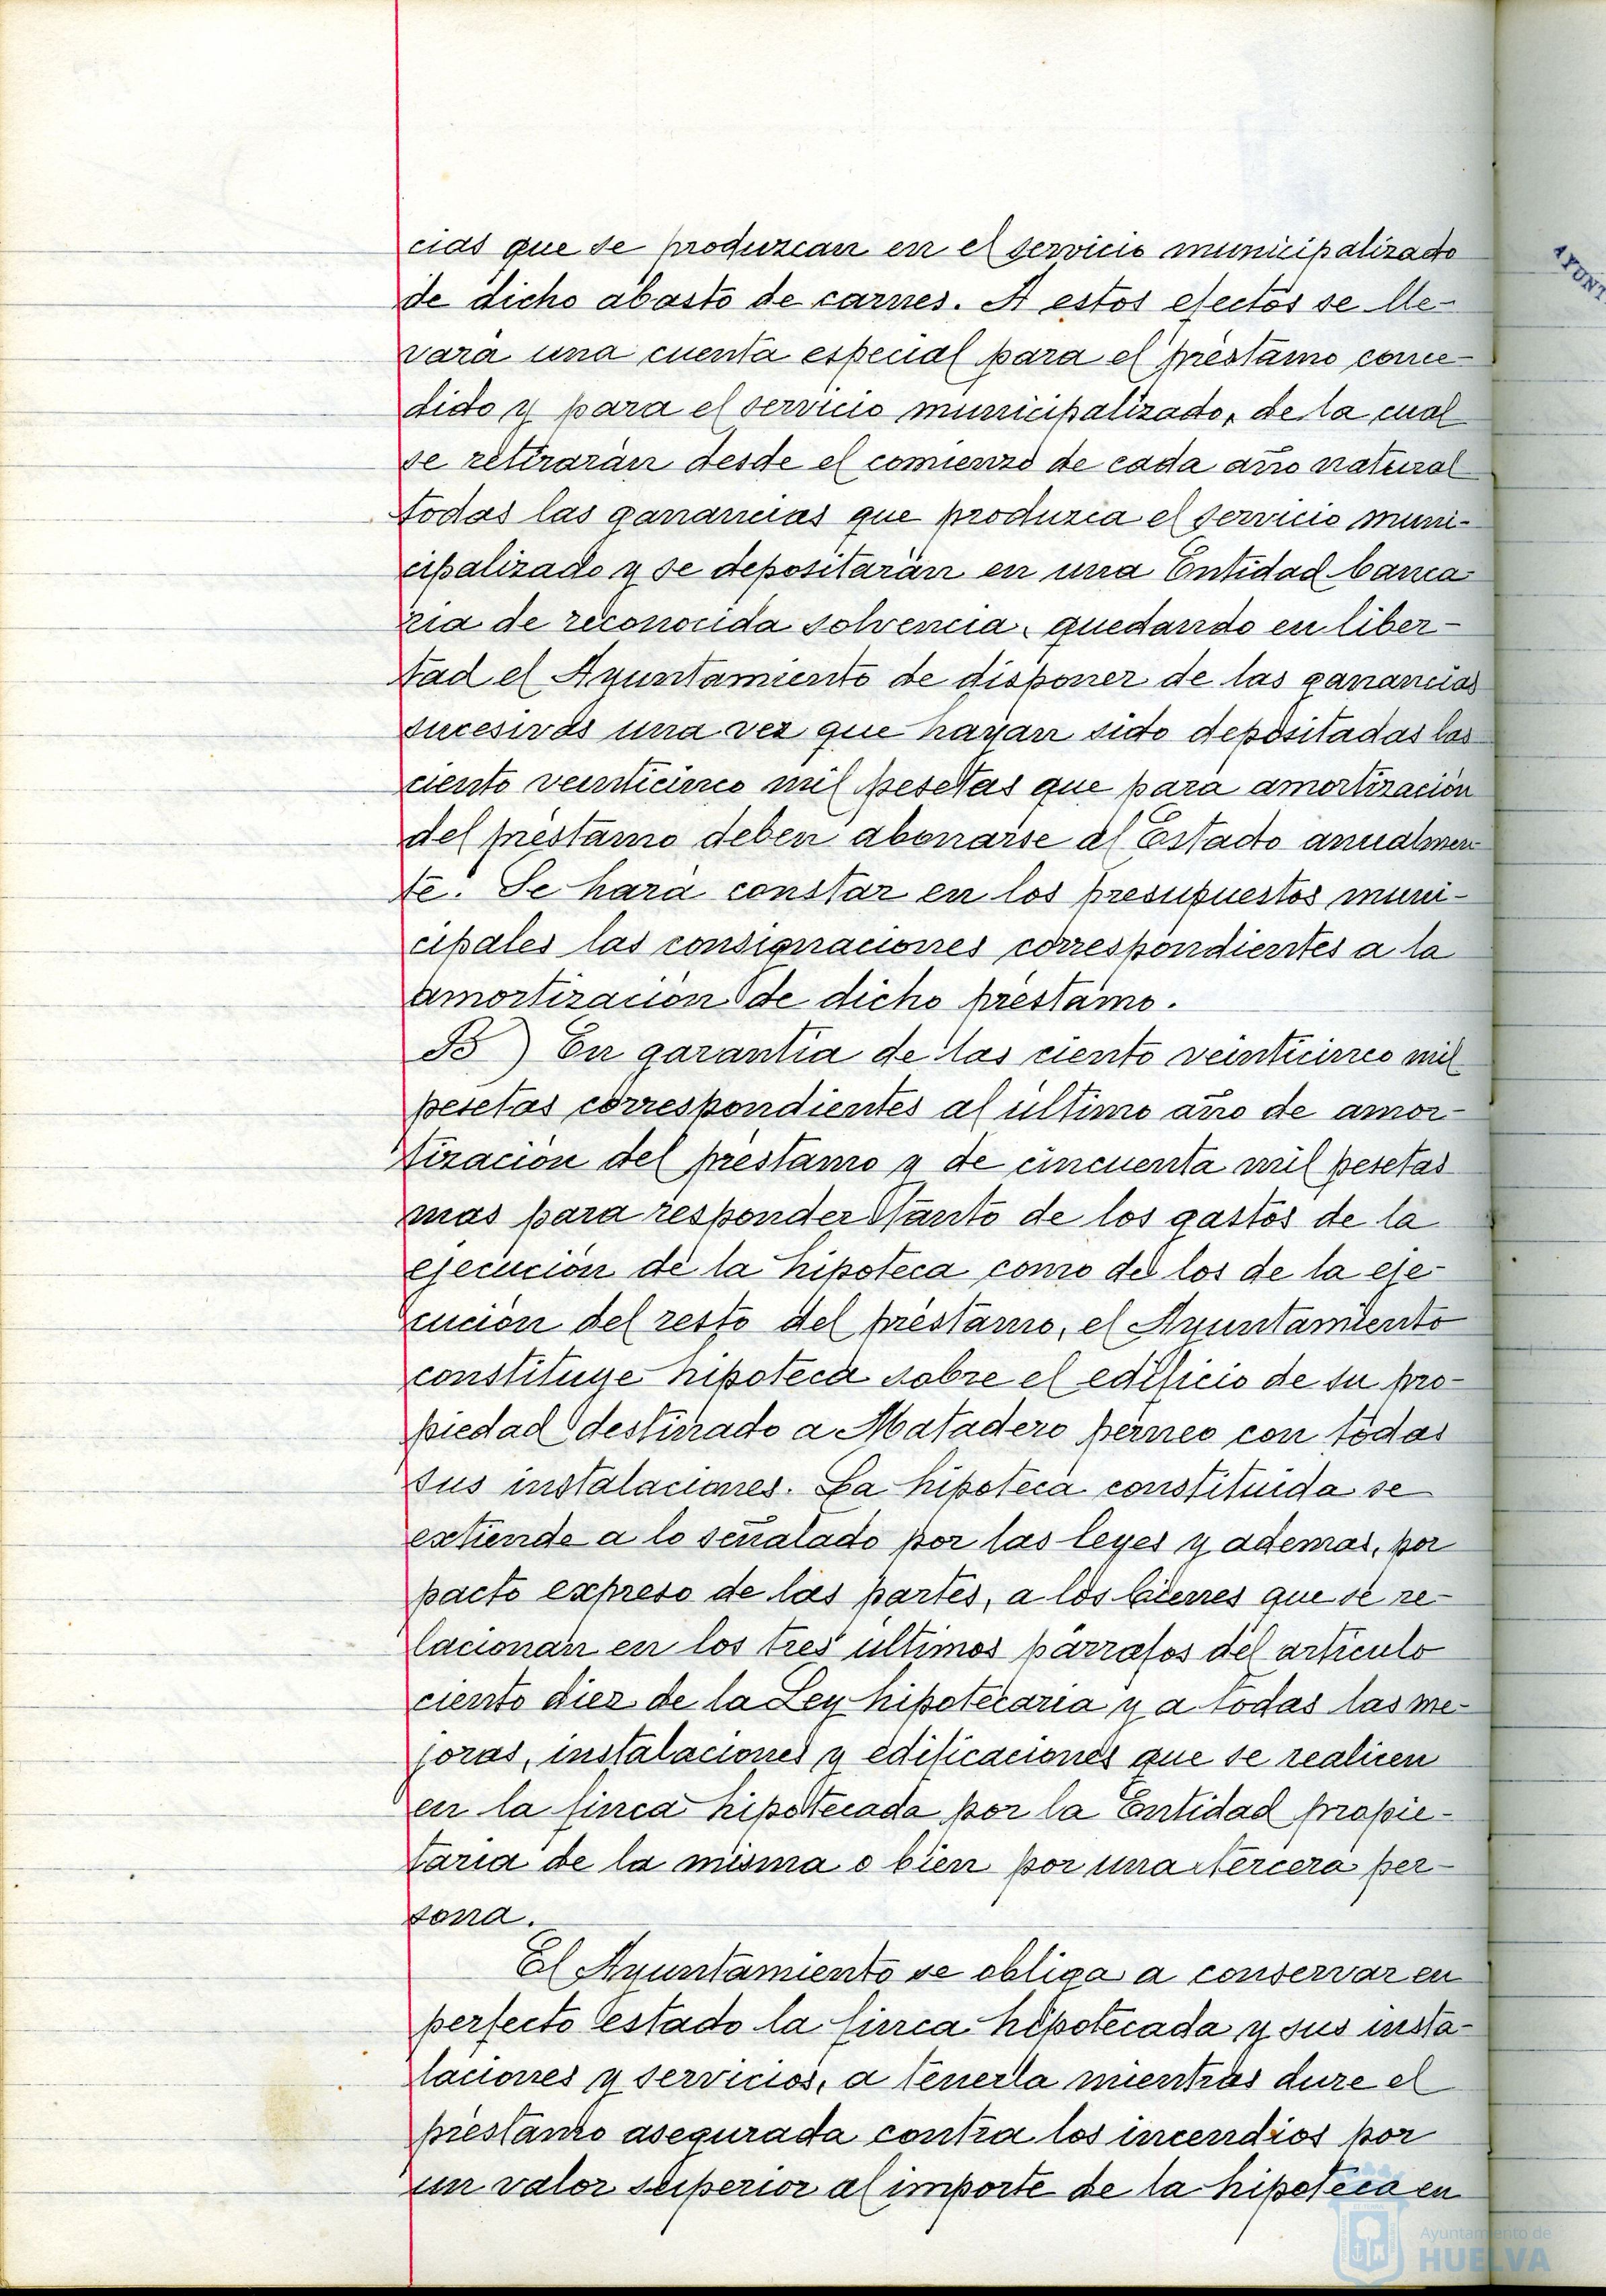 cias que se produzcan en el servicio municipalizado
de dicho abasto de carnes. A estos efectos se lle-
vará una cuenta especial para el préstamo conce-
dido y para el servicio municipalizado, de la cual
se retirarán desde el comienzo de cada año natural
todas las ganancias que produzca el servicio muni-
cipalizado y se depositarán en una Entidad banca-
ria de reconocida solvencia, quedando en liber-
tad el Ayuntamiento de disponer de las ganancias
sucesivas una vez que hayan sido depositadas las
ciento veinticinco mil pesetas que para amortización
del préstamo deben abonarse al Estado anualmen-
te. Se hará constar en los presupuestos muni-
cipales las consignaciones correspondientes a la
amortización de dicho préstamo.
B) En garantía de las ciento veinticinco mil
pesetas correspondientes al último año de amor-
tización del préstamo y de cincuenta mil pesetas
mas para responder tanto de los gastos de la
ejecución de la hipoteca como de los de la eje-
cución del resto del préstamo, el Ayuntamiento
constituye hipoteca sobre el edificio de su pro-
piedad destinado a Matadero perneo con todas
sus instalaciones. La hipoteca constituida se
extiende a lo señalado por las leyes y ademas, por
pacto expreso de las partes, a los bienes que se re-
lacionan en los tres últimos párrafos del artículo
ciento diez de la Ley hipotecaria y a todas las me-
joras, instalaciones y edificaciones que se realicen
en la finca hipotecada por la Entidad propie-
taria de la misma o bien por una tercera per-
sona.
El Ayuntamiento se obliga a conservar en
perfecto estado la finca hipotecada y sus insta-
laciones y servicios, a tenerla mientras dure el
préstamo asegurada contra los incendios por
un valor superior al importe de la hipoteca en
AYUNT
Ayuntamiento de
HUELVA